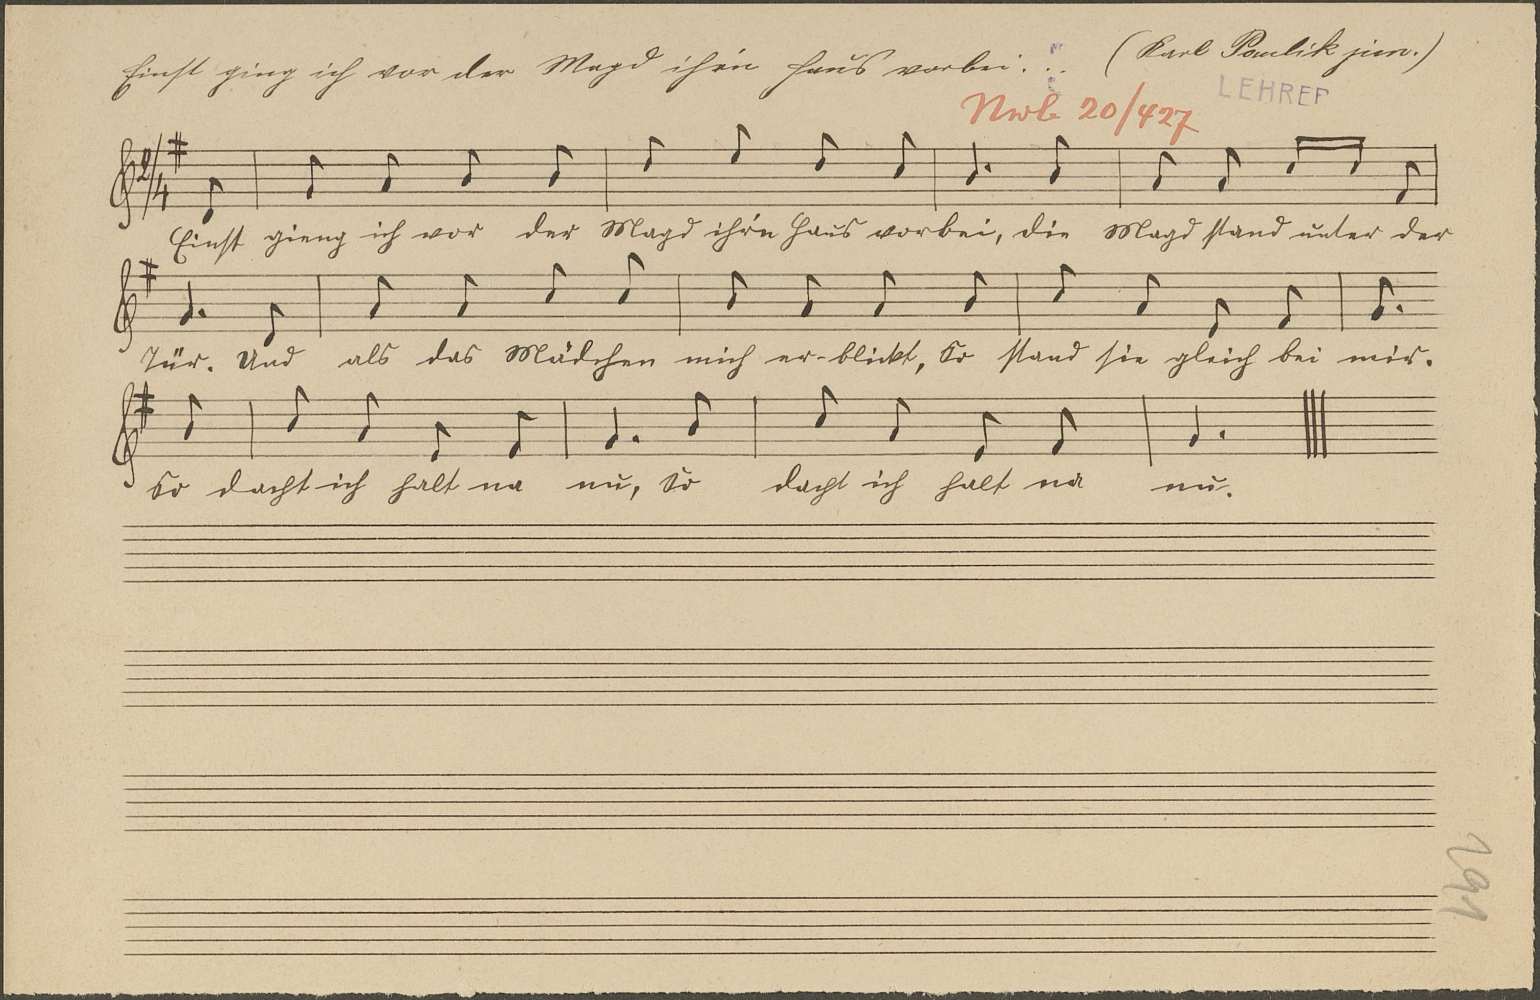 Einst ging ich vor der Magd ihr'n Haus vorbei. . . (Karl Paulik jun.)
LEHRER
Nwb 20/427
2/4
Einst gieng ich vor der Magd ihr'n Haus vorbei, die Magd stand unter der
Tür. Und als das Mädchen mich er-blickt, So stand sie gleich bei mir.
So dacht ich halt na nu, So dacht ich halt na nu.
191